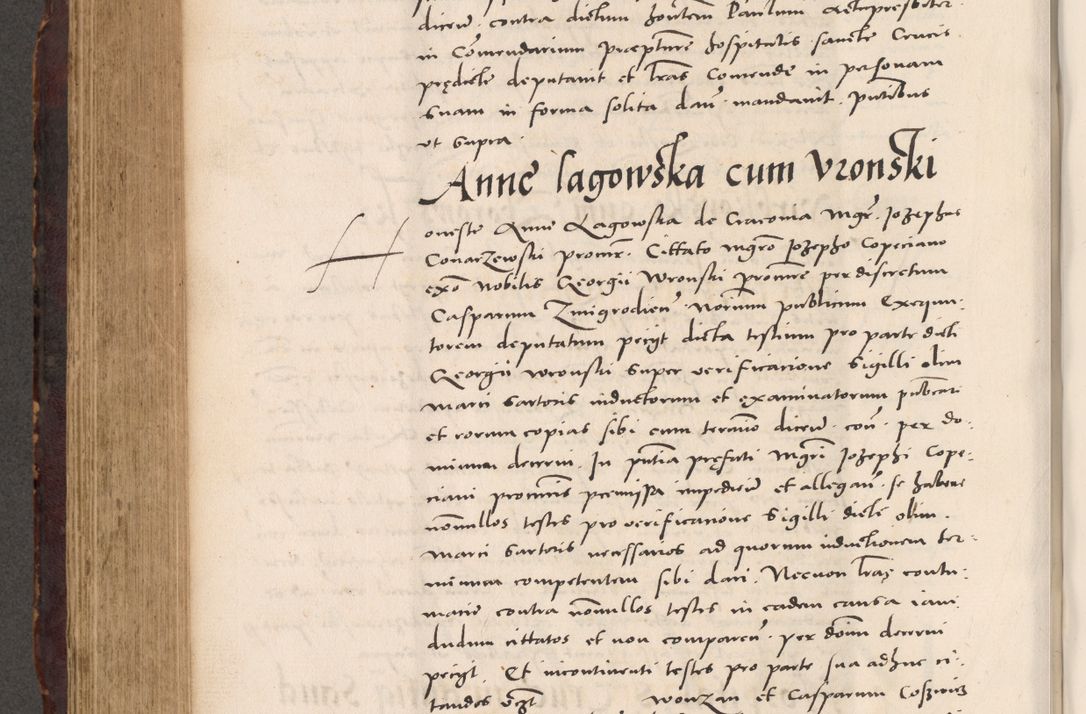 dicen̄ contra dictum hon̄tem Paulum Archipresbiter
in Com̄endarium præpt̄ure hospitalis sancte Crucis
prędicte deputavit et l̄ras Comende in personam
suam in forma solita dan̄ mandavit. pn̄tibus
ut supra
Anne lagowska cum Vronski
oneste Anne Lagowska de Cracovia Mgr̄ Jozephus
Conarzewski procur̄. Cittato mgr̄o Jozepho Copeciano
exō nobilis Georgii Wronski procur̄e per discretum
Casparum Zmigrodien̄ notr̄ium publicum Exequu-
torem deputatum petiyt dicta testium pro parte dicti
Georgii Wronski super verificatione Sigilli olim
Marci Sartoris inductorum et examinatorum publicari
et eorum copias sibi cum termino dicen̄ con̄ per do-
minum decerni. In pn̄tia pręfati Mgr̄i Jozephi Cope-
ciani procuris̄ pręmissa impedien̄ et allegan̄ se habere
non̄nullos testes pro verificatione Sigilli dicti olim
Marci Sartoris necessarios ad quorum inductionem ter-
minum competentem sibi dari. Necnon l̄ras contu-
matie contra non̄nullos testes in eadem causa iam
dudum cittatos et non comparen̄ per dom̄ decerni
petiyt. Et incontinenti testes pro parte sua adhuc ci-
tandos ... Wonzan et Casparum